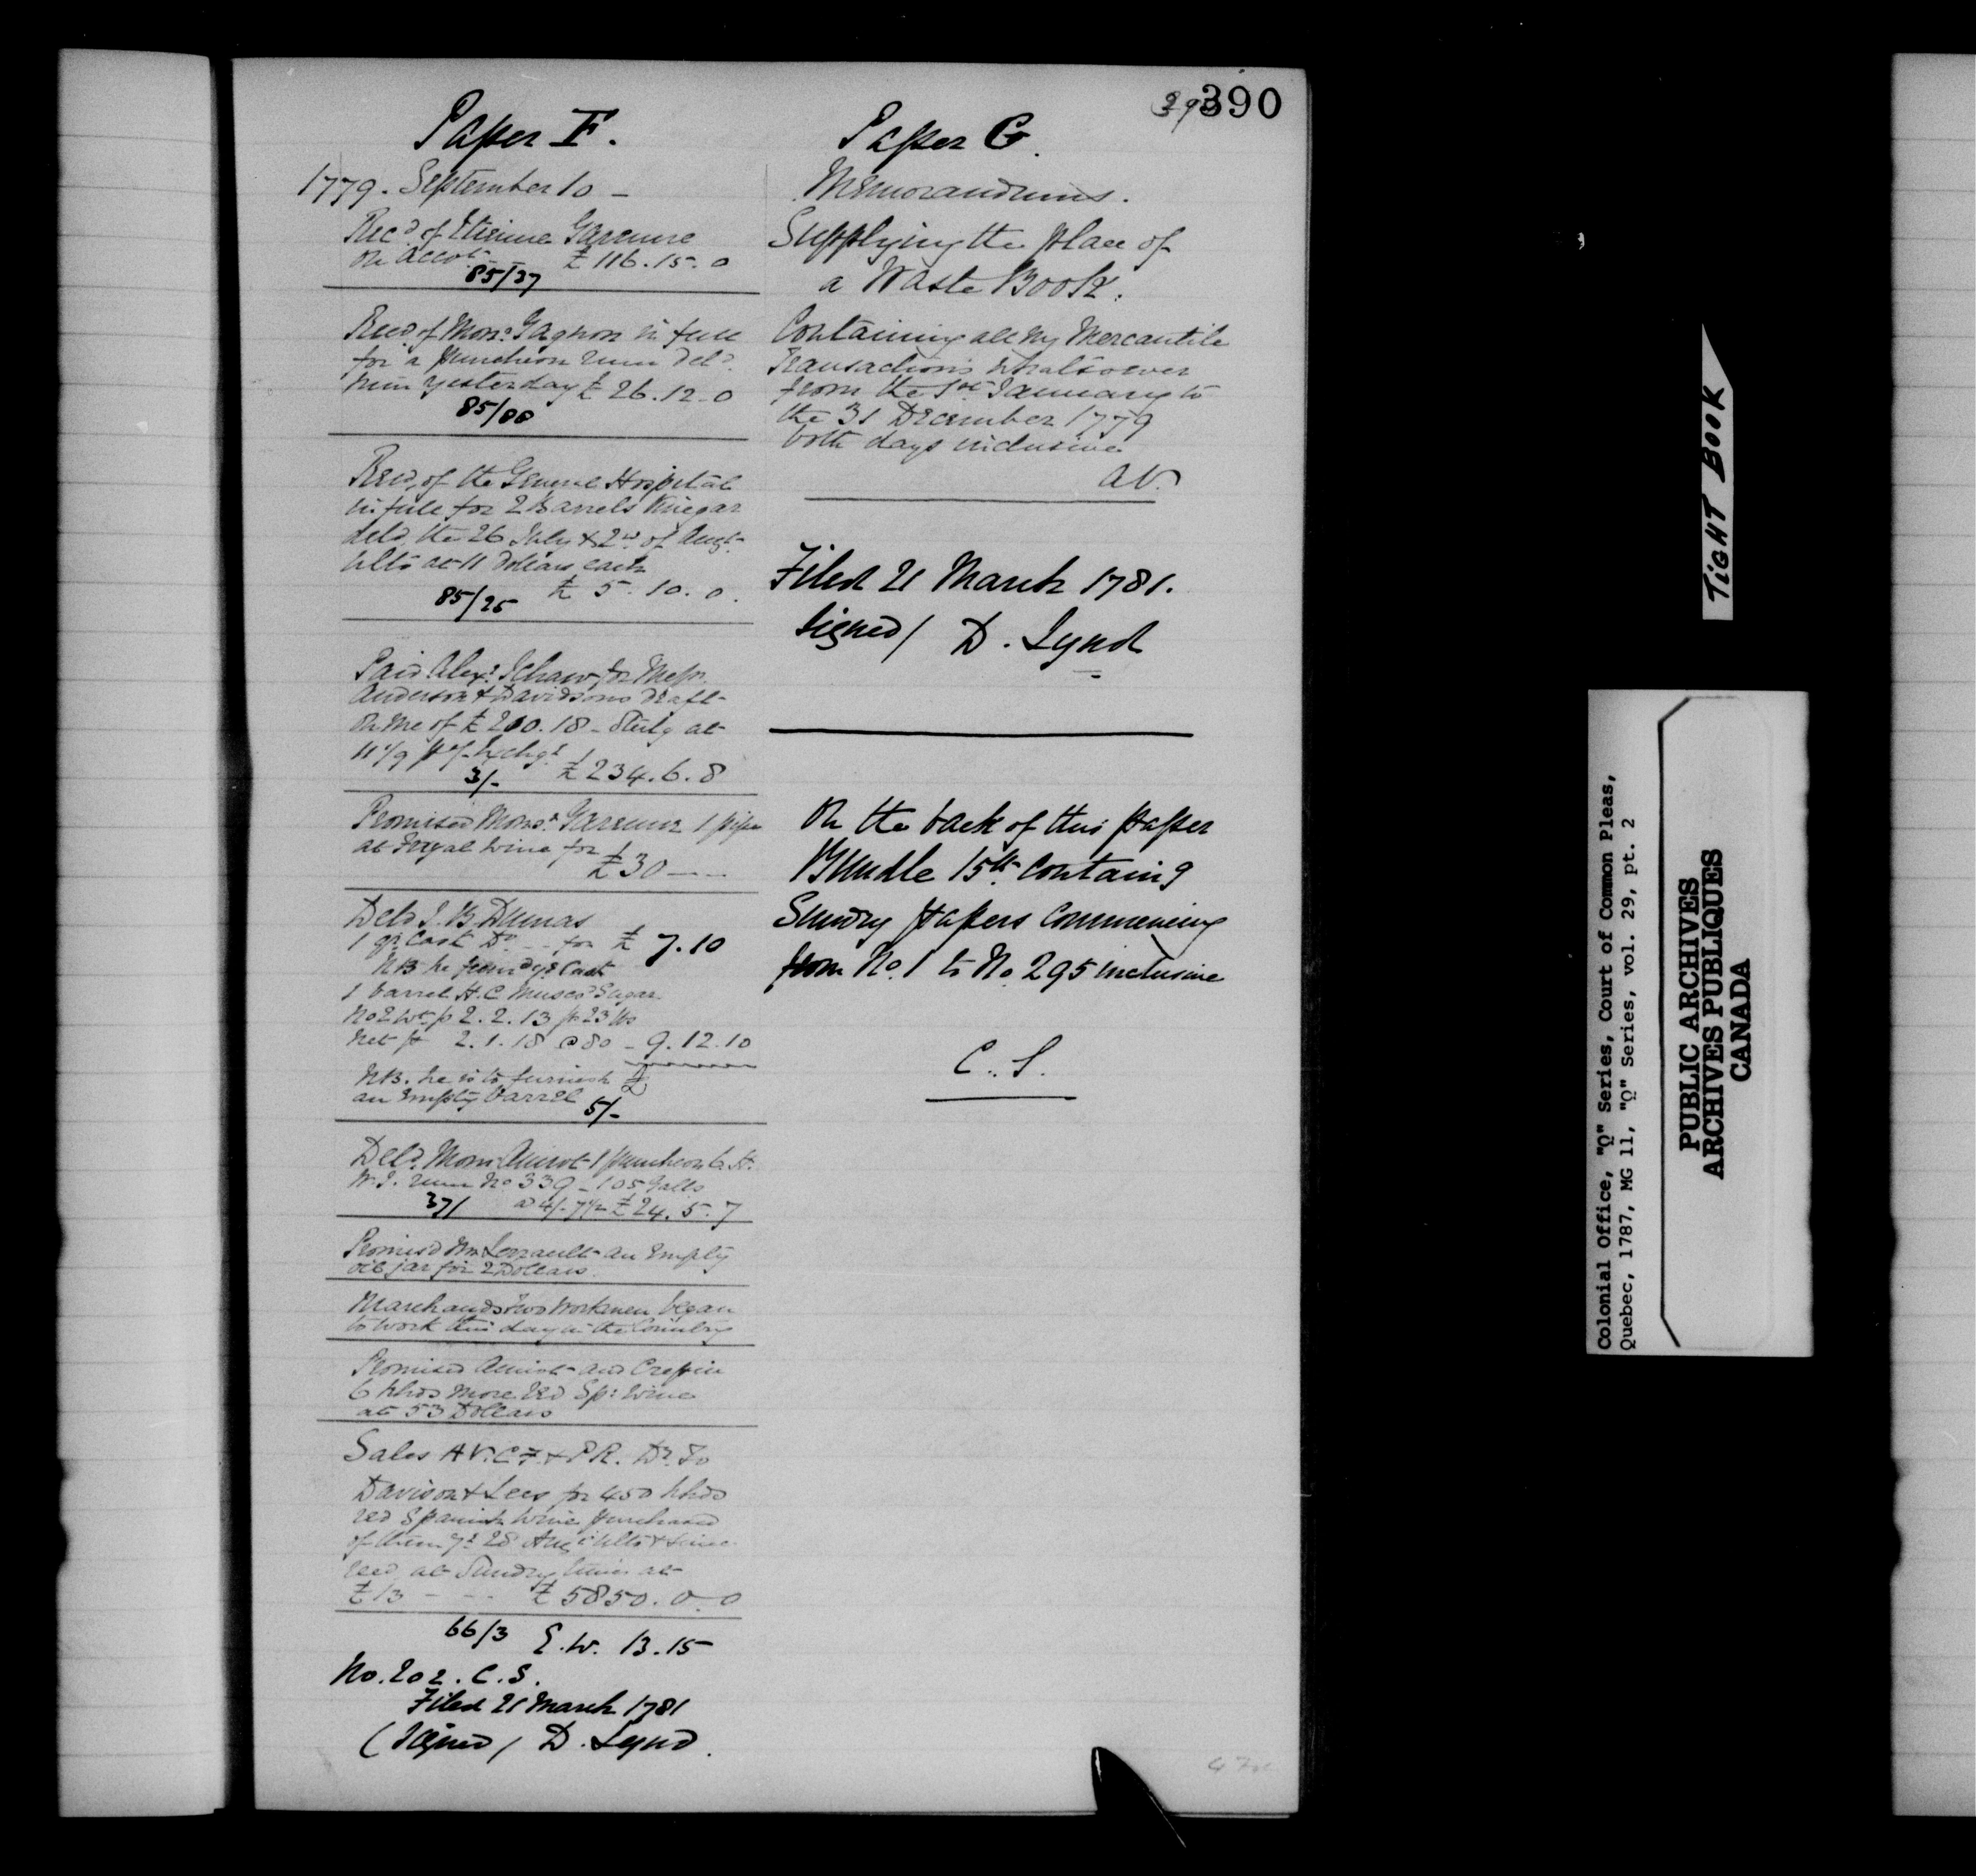 390
Paper F.
1779. September 10 -
Rec.d of Etienne Garenne
on Accot - - £ 116.15.0
85/37
Reed. of Mons. Gagnon in full
for a puncheon rum Del.d
him yesterday £ 26.12.0
85/88
Recd, of the General Hospital
in full for 2 Barrels Vinegar
deld, the 26 July & 2nd of Augt.
ulto at 11 Dollars each
£ 5.10.0.
85/25
Paid Alexr. Schaw, for Messrs.
Anderson & Davidsons Draft
on me of £ 200.18 - Sterlg at
Exchge
3/- £ 234.6.8
Promised Monsr. Garenne 1 pipe
at Fayal wine for
£ 30 - - -
Deld J. B. Dumas
1 qr. Cask Do. - - for £ 7.10
NB he Cask
1 barrel H.C. Muscod Sugar
No 2 Wt. p 2.2.13 pr 23 lbs
Net pr 2.1.18 @ 80 - 9.12.10
NB. he is to furnish £
an empty barrel 5/-
Deld. Monr. Amiot 1 puncheon
W.I. rum No 339 - 105 Galls
37/ a 4/. 7½ £ 24.5.7
Promisd an empty
oil jar for 2 Dollars.
Marchands two workmen began
to work this day in the Country
Promised Amiot and Crepin
6 hhds more red Sp: wine
at 53 Dollars
Sales A V. C F. & P R. Dr. To
Davison & Lees for 450 hhds
red Spanish wine purchased
of them ye 28 Augt. ulto & since
recd, at Sundry times at
£ 13 - - - £ 5850.0.0
66/3 E.W. 13.15
No. 202. C.S.
Filed 21 March 1781
(Signed) D. Lynd.
Paper G.
Memorandums.
Supplying the place of
a Waste Book.
Containing all my Mercantile
Transactions whatsoever
from the 1st January to
the 31 December 1779
both days inclusive
A V.
Filed 21 March 1781.
Signed / D. Lynd
On the back of this paper
Bundle 15th. Containg
Sundry papers Commencing
from No. 1 to No. 295 inclusive
C. S.
TIGHT BOOK
Colonial Office, "Q" Series, Court of Common Pleas,
Quebec, 1787, MG 11, "Q" Series, vol. 29, pt. 2
PUBLIC ARCHIVES
ARCHIVES PUBLIQUES
CANADA